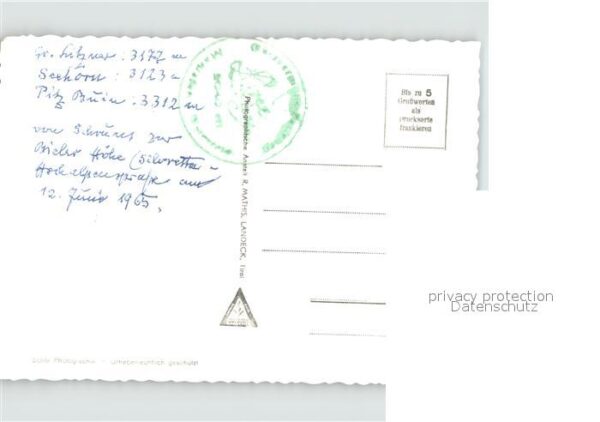 Gr. Litzner : 3177 m
Seehörn : 3123 m
Pitz Buin : 3312 m
von Schruns zur
Bieler Höhe (Silvretta-
Hochalpenstraße am
12. Juni 1965,
Photographische Anstalt R. MATHIS, LANDECK, Tirol
Bis zu 5
Grußworten
als
Drucksorte
frankieren
privacy protection
Datenschutz
Photographie - urheberrechtlich geschützt